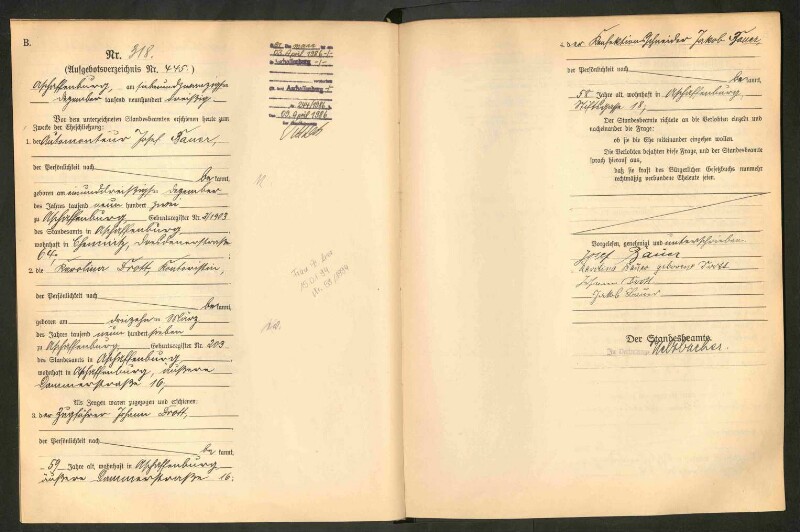 B.
Nr. 318.
(Aufgebotsverzeichnis Nr. 445.)
Aschaffenburg, am siebenundzwanzigsten
Dezember tausend neunhundert dreißig.
Vor dem unterzeichneten Standesbeamten erschienen heute zum
Zwecke der Eheschließung:
1. der Automonteur Josef Bauer,
der Persönlichkeit nach
be kannt,
geboren am einunddreißigsten Dezember
des Jahres tausend neun hundert zwei
zu Aschaffenburg, Geburtsregister Nr. 2/1903
des Standesamts in Aschaffenburg,
wohnhaft in Chemnitz, Dresdenerstraße
64.
2. die Karolina Trott, Kontoristin,
der Persönlichkeit nach
be kannt,
geboren am dreizehn März
des Jahres tausend neun hundert sieben
zu Aschaffenburg, Geburtsregister Nr. 203
des Standesamts in Aschaffenburg,
wohnhaft in Aschaffenburg, äußere
Dammerstraße 16,
Als Zeugen waren zugezogen und erschienen:
3. der Zugführer Johann Trott,
der Persönlichkeit nach
be kannt,
59 Jahre alt, wohnhaft in Aschaffenburg
äußere Dammerstraße 16.
03. April 1986
Aschaffenburg
09. April 1986
4. der Konfektionsschneider Jakob Bauer,
der Persönlichkeit nach
be kannt,
58 Jahre alt, wohnhaft in Aschaffenburg,
Stiftsgasse 18,
Der Standesbeamte richtete an die Verlobten einzeln und
nacheinander die Frage:
ob sie die Ehe miteinander eingehen wollen.
Die Verlobten bejahten diese Frage, und der Standesbeamte
sprach hierauf aus,
daß sie kraft des Bürgerlichen Gesetzbuchs nunmehr
rechtmäßig verbundene Eheleute seien.
Vorgelesen, genehmigt und unterschrieben.
Josef Bauer
Karolina Bauer geborene Trott
Johann Trott
Jakob Bauer
Der Standesbeamte.